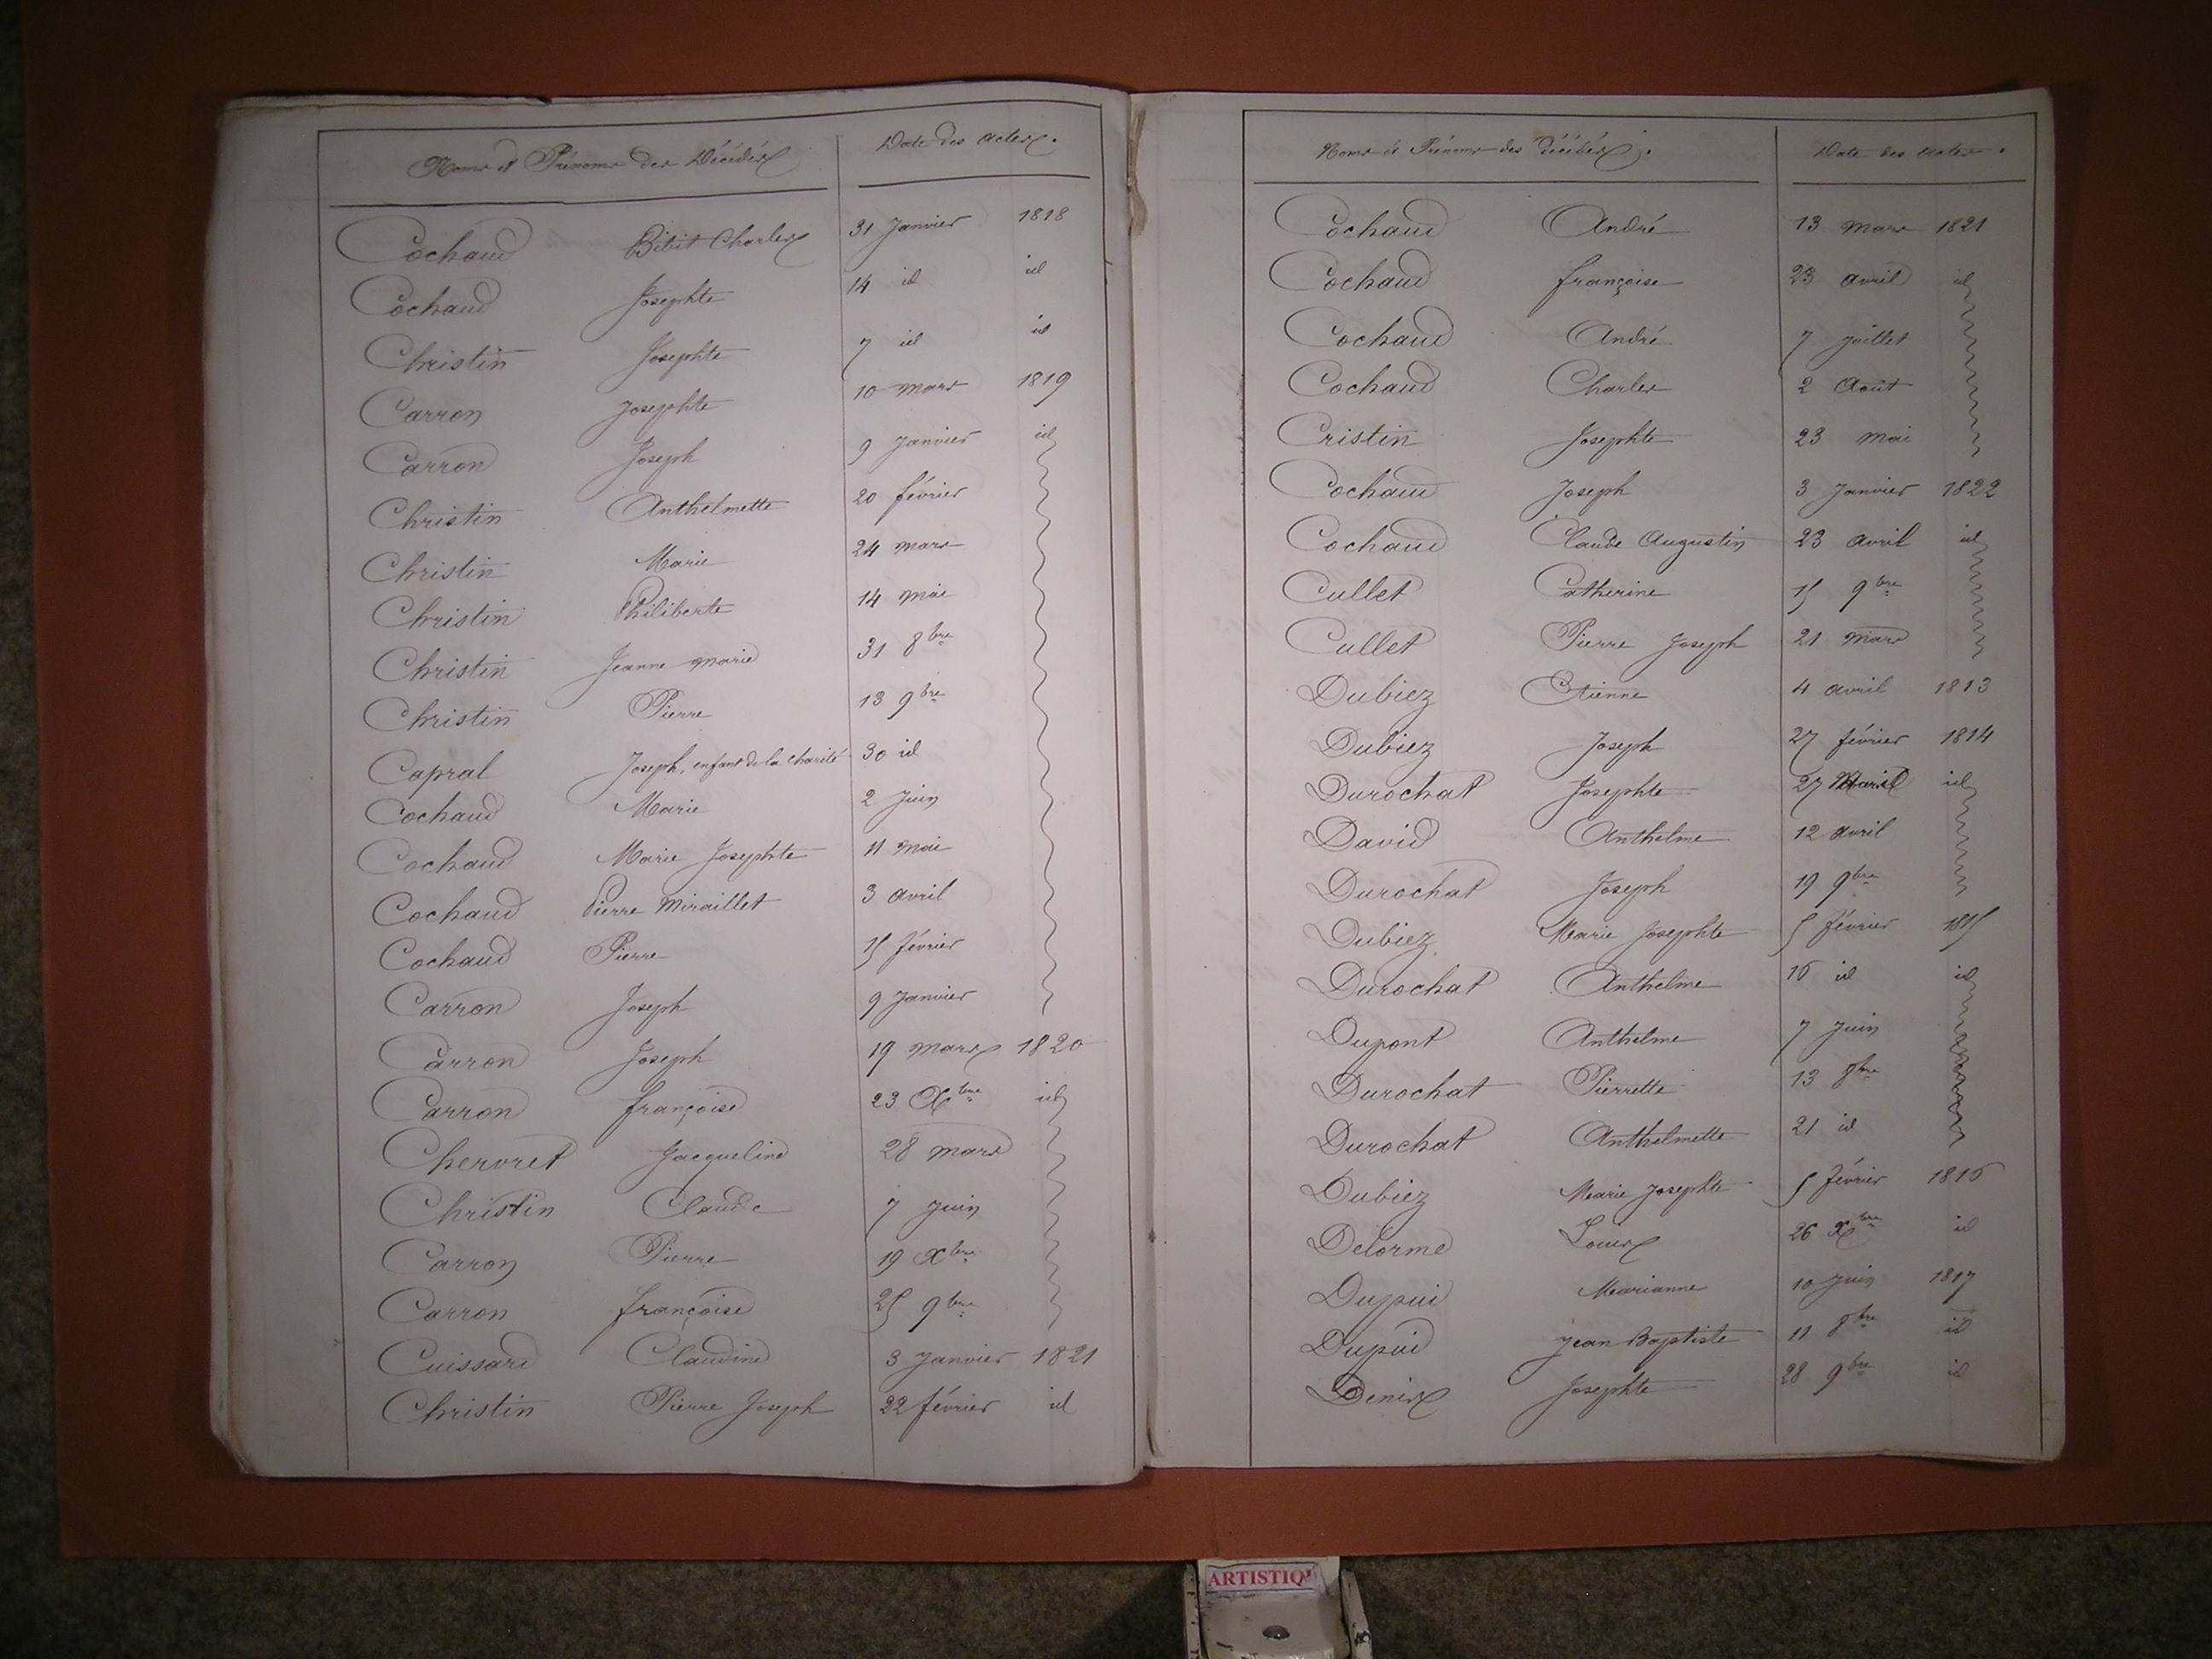 Noms et Prénoms des Décédés Date des actes.
Cochaud Bitit Charles 31 Janvier 1818
Cochaud Josephte 14 id id
Christin Josephte 7 id id
Carron Josephte 10 mars 1819
Carron Joseph 9 Janvier id
Christin Anthelmette 20 février
Christin Marie 24 mars
Christin Philiberte 14 mai
Christin Jeanne marie 31 8bre
Christin Pierre 13 9bre
Capral Joseph, enfant de la charité 30 id
Cochaud Marie 2 Juin
Cochaud Marie Josephte 11 mai
Cochaud Pierre Miraillet 3 avril
Cochaud Pierre 15 février
Carron Joseph 9 Janvier
Carron Joseph 19 mars 1820
Carron françoise 23 Xbre id
Chervret Jacqueline 28 mars
Christin Claude 7 Juin
Carron Pierre 19 Xbre
Carron françoise 25 9bre
Cuissard Claudine 3 Janvier 1821
Christin Pierre Joseph 22 février id
Noms et Prénoms des décédés. Date des actes.
Cochaud André 13 mars 1821
Cochaud françoise 23 avril id
Cochaud André 7 juillet
Cochaud Charles 2 Août
Cristin Josephte 23 mai
Cochaud Joseph 3 Janvier 1822
Cochaud Claude Augustin 23 avril id
Cullet Catherine 15 9bre
Cullet Pierre Joseph 21 mars
Dubiez Etienne 4 avril 1813
Dubiez Joseph 27 février 1814
Durochat Josephte 27 id
David Anthelme 12 avril
Durochat Joseph 19 9bre
Dubiez Marie Josephte 5 février 1815
Durochat Anthelme 16 id id
Dupont Anthelme 7 Juin
Durochat Pierrette 13 8bre
Durochat Anthelmette 21 id
Dubiez Marie Josephte 5 février 1816
Delorme Louis 26 Xbre id
Dupui Marianne 10 Juin 1817
Dupui Jean Baptiste 11 8bre id
Denis Josephte 28 9bre id
ARTISTIQ'